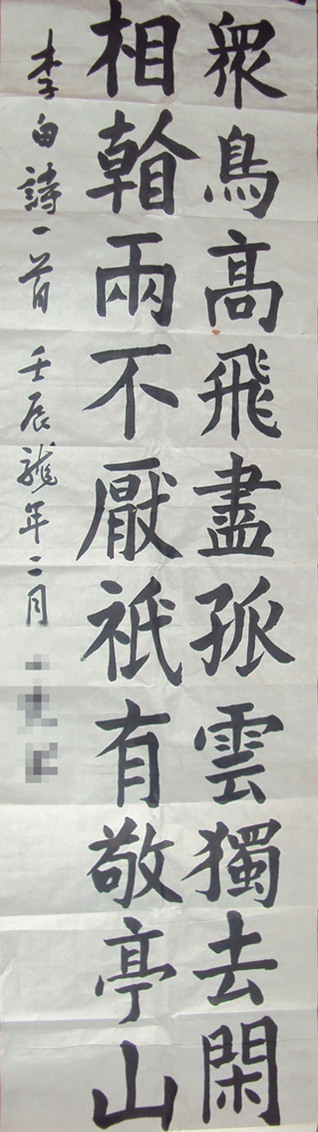 衆鳥高飛盡孤雲獨去閑
相兩不厭祇有敬亭山
李白詩一首 壬辰龍年二月